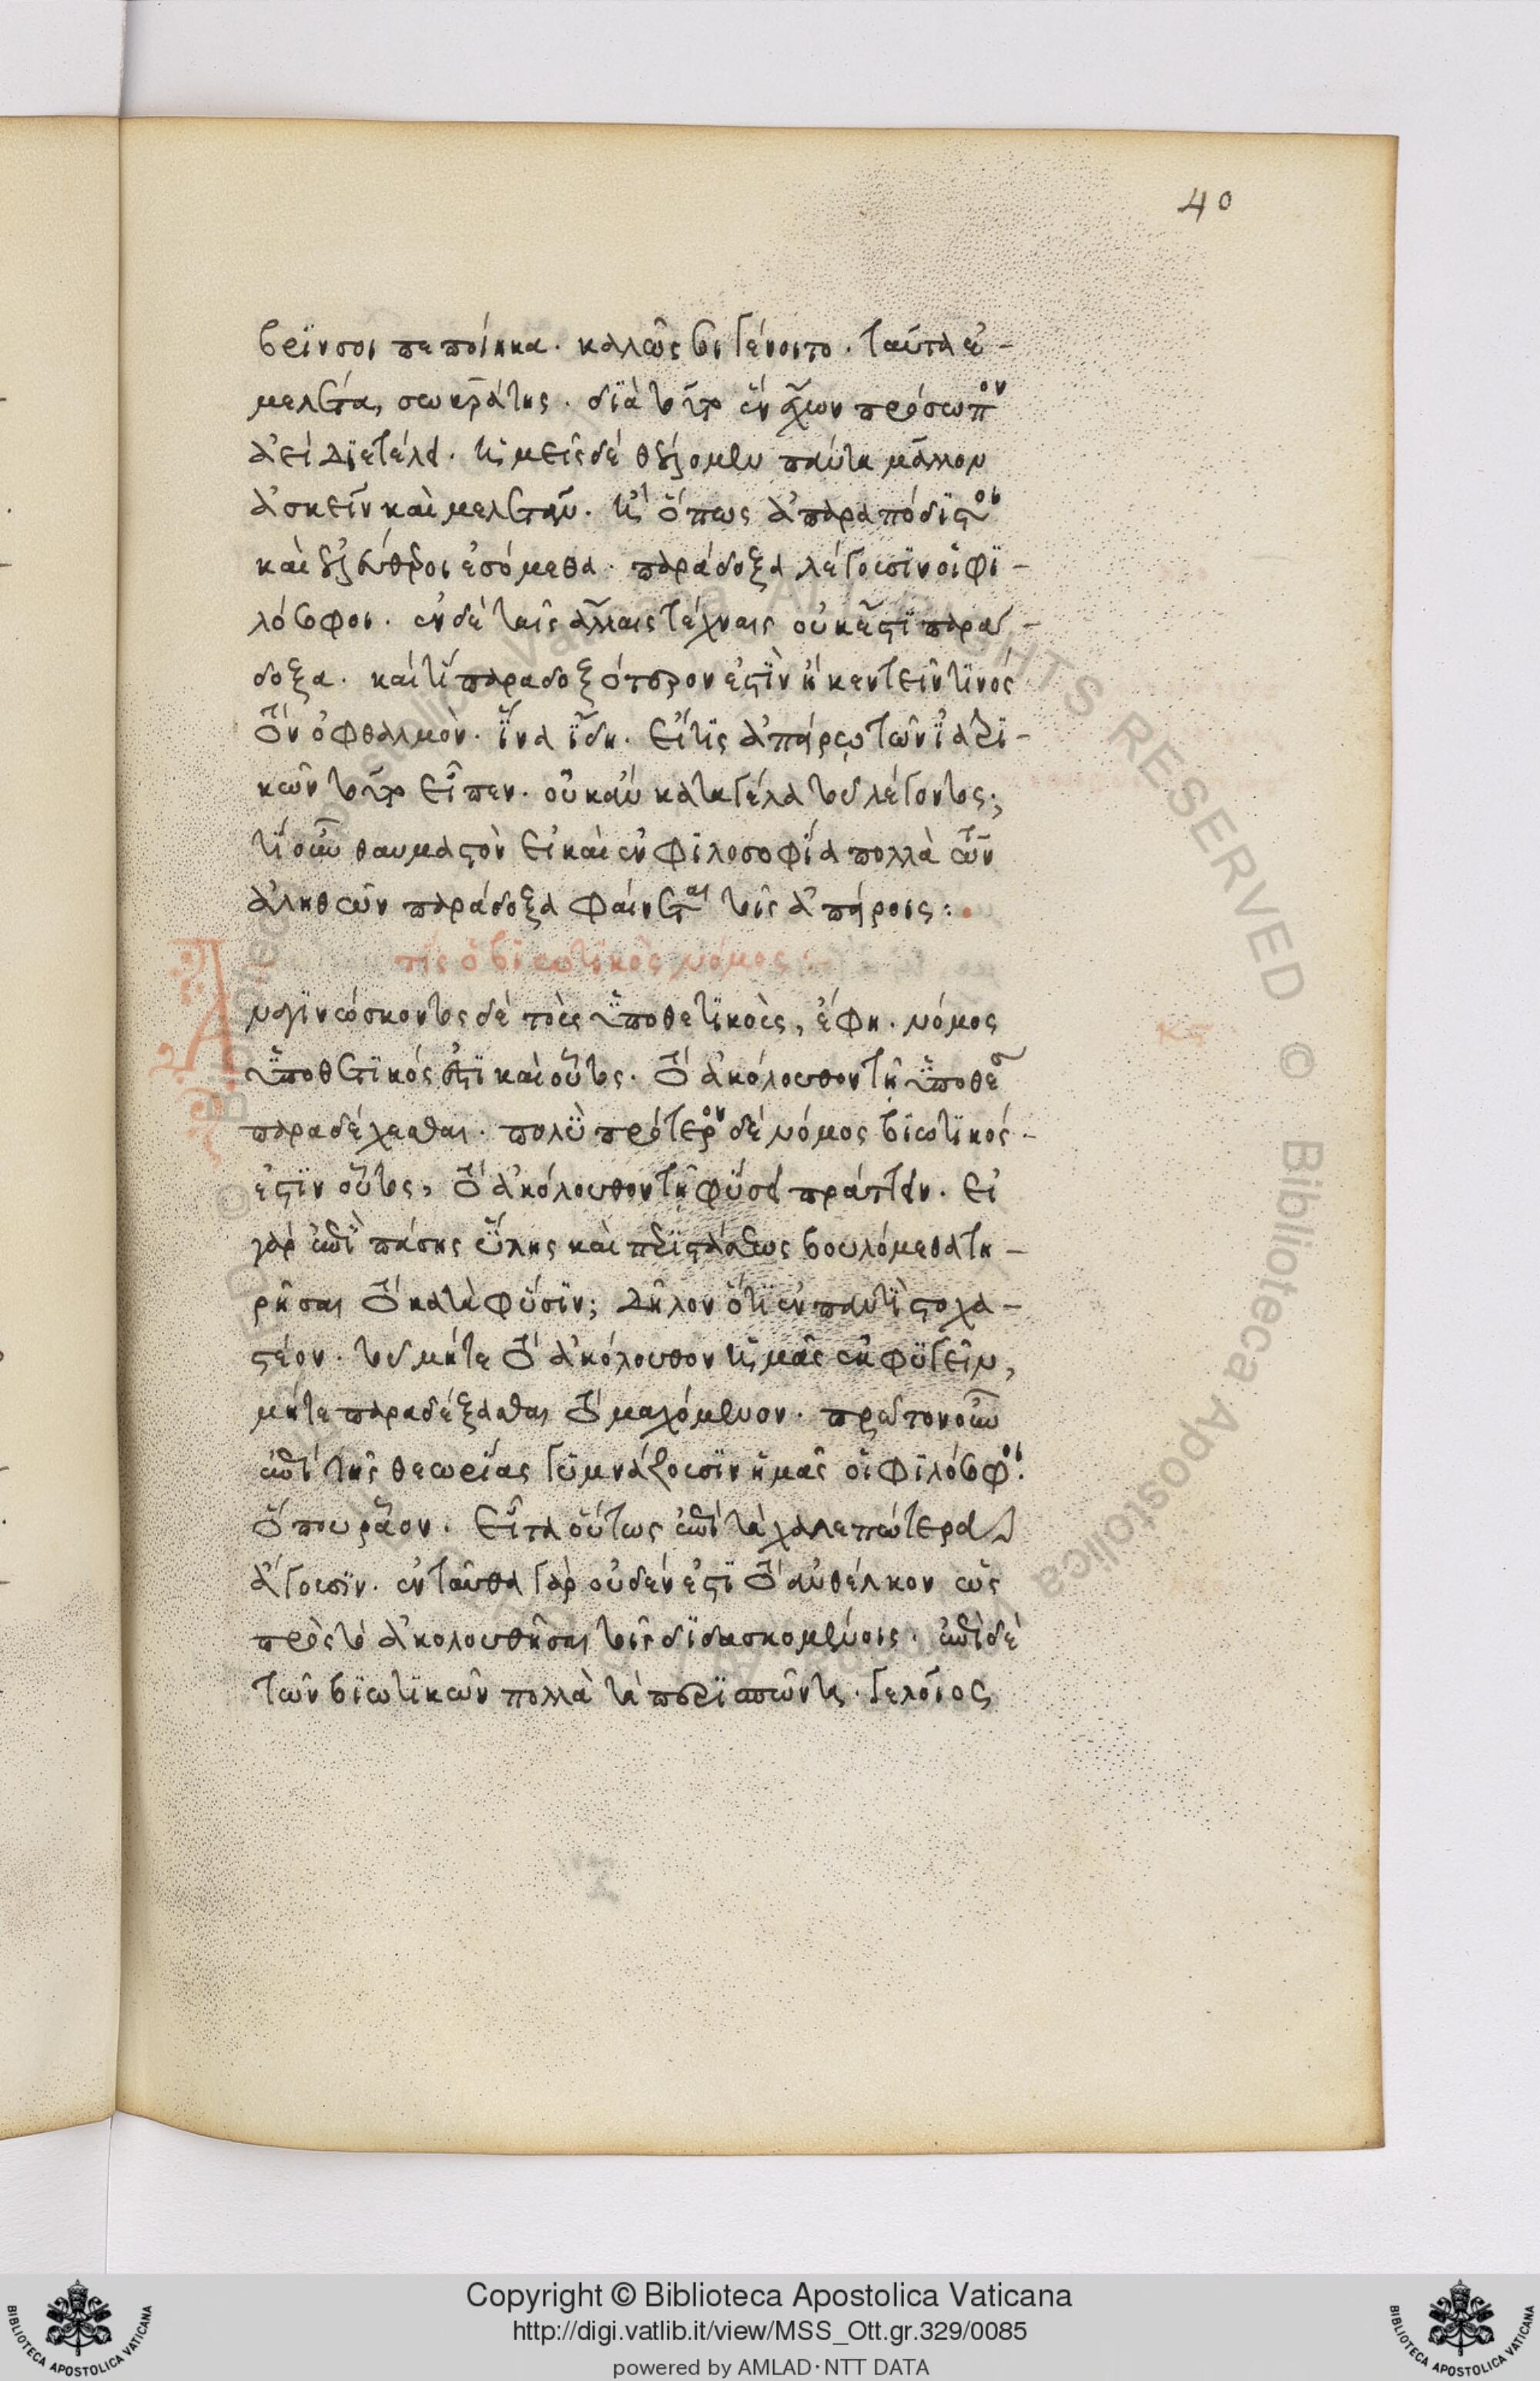 40
βρίν σοι πεποίηκα. καλῶς σοι γένοιτο. ταῦτα ἐ-
μελέτα, σωκράτης. διὰ τοῦτο ἓν ἔχων πρόσωπον
ἀεὶ διετέλει. ἡμεῖς δὲ θέλομεν πάντα μᾶλλον
ἀσκεῖν καὶ μελετᾶν. ἢ ὅπως ἀπαραπόδιστοι
καὶ ἐλεύθεροι ἐσόμεθα. παράδοξα λέγουσιν οἱ φι-
λόσοφοι. ἐν δὲ ταῖς ἄλλαις τέχναις οὐκ ἔστι παρά-
δοξα. καὶ τί παραδοξότερόν ἐστιν ἢ κεντεῖν τινός
τὸν ὀφθαλμὸν. ἵνα ἴδῃ. εἴ τις ἀπείρῳ τῶν ἰατρι-
κῶν τοῦτο εἶπεν. οὐκ ἂν κατεγέλα τοῦ λέγοντος;
τί οὖν θαυμαστὸν εἰ καὶ ἐν φιλοσοφίᾳ πολλὰ τῶν
ἀληθῶν παράδοξα φαίνεται τοῖς ἀπείροις:.
τίς ὁ βιωτικὸς νόμος:
Ἀναγινώσκοντος δὲ τοὺς ὑποθετικοὺς, ἔφη. νόμος
ὑποθετικός ἐστι καὶ οὗτος. τὸ ἀκόλουθον τῇ ὑποθέσει
παραδέχεσθαι. πολὺ πρότερον δὲ νόμος βιωτικός
ἐστιν οὗτος, τὸ ἀκόλουθον τῇ φύσει πράττειν. εἰ
γὰρ ἐπὶ πάσης ὕλης καὶ περιστάσεως βουλόμεθα τη-
ρῆσαι τὸ κατὰ φύσιν; δῆλον ὅτι ἐν παντὶ στοχα-
στέον. τοῦ μήτε τὸ ἀκόλουθον ἡμᾶς ἐκφυγεῖν,
μήτε παραδέξασθαι τὸ μαχόμενον. πρῶτον οὖν
ἐπὶ τῆς θεωρίας γυμνάζουσιν ἡμᾶς οἱ φιλόσοφοι.
ὅπου ῥᾷον. εἶτα οὕτως ἐπὶ τὰ χαλεπώτερα
ἄγουσιν. ἐνταῦθα γὰρ οὐδέν ἐστι τὸ ἀνθέλκον ὡς
πρὸς τὸ ἀκολουθῆσαι τοῖς διδασκομένοις. ἐπὶ δὲ
τῶν βιωτικῶν πολλὰ τὰ περισπῶντα. γελοῖος
κς
Copyright © Biblioteca Apostolica Vaticana
http://digi.vatlib.it/view/MSS_Ott.gr.329/0085
powered by AMLAD·NTT DATA